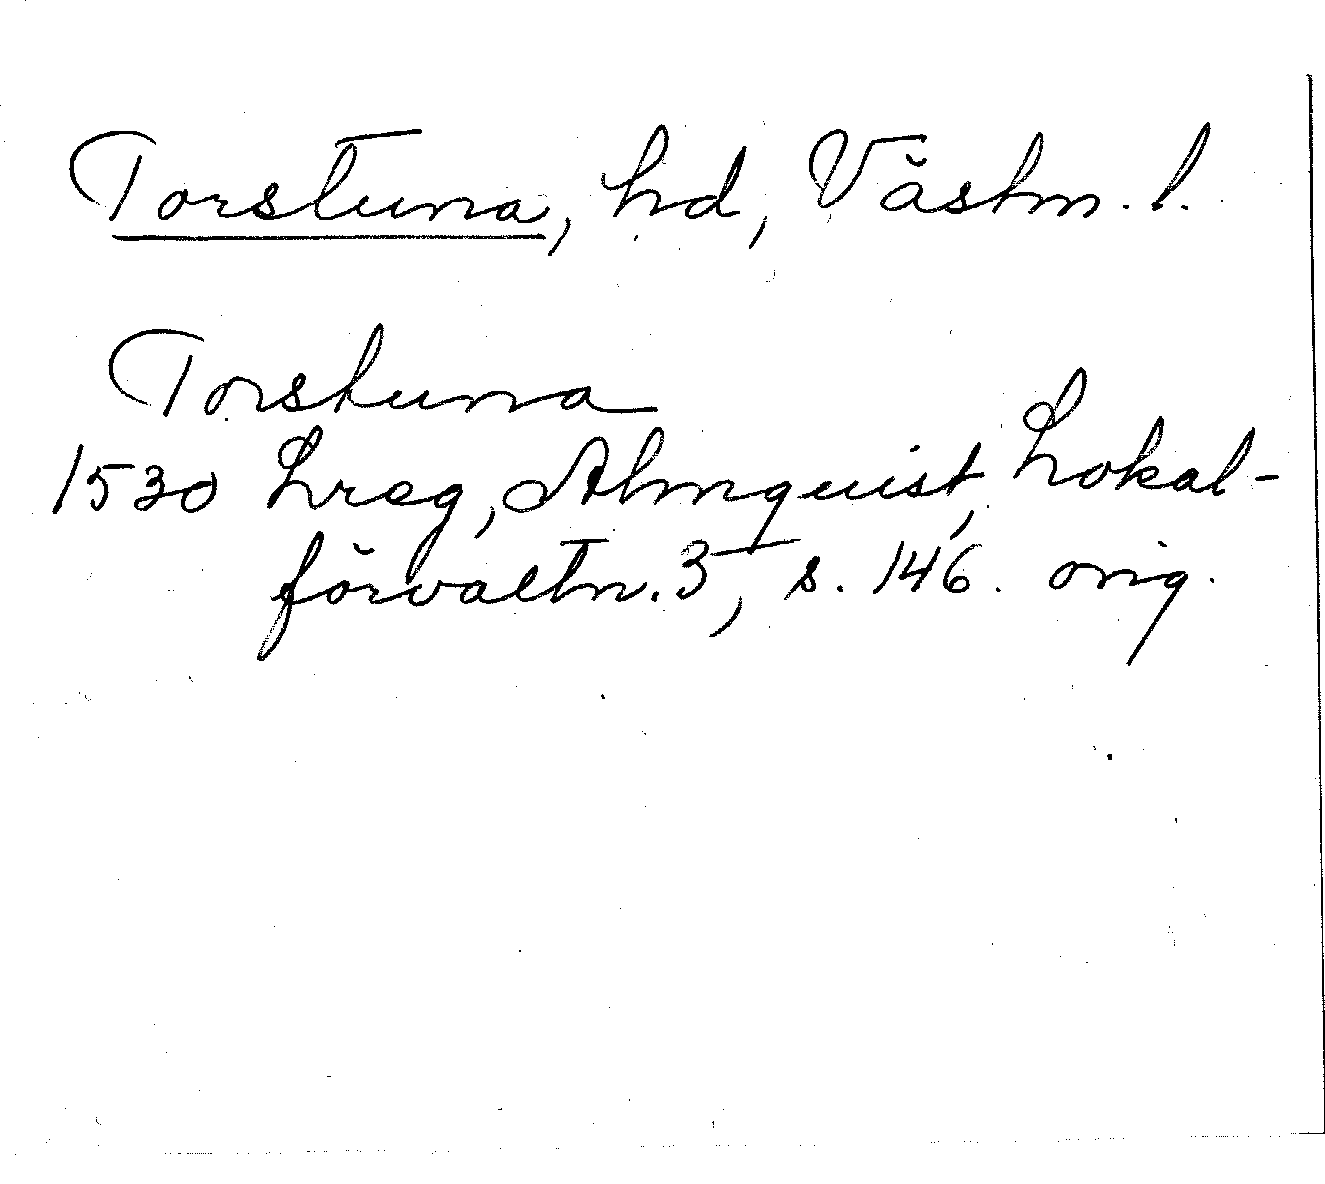 Torstuna, hd, Västm. l.
Torstuna
1530 Lreg, Almquist, Lokal-
förvaltn. 3, s. 146. orig.